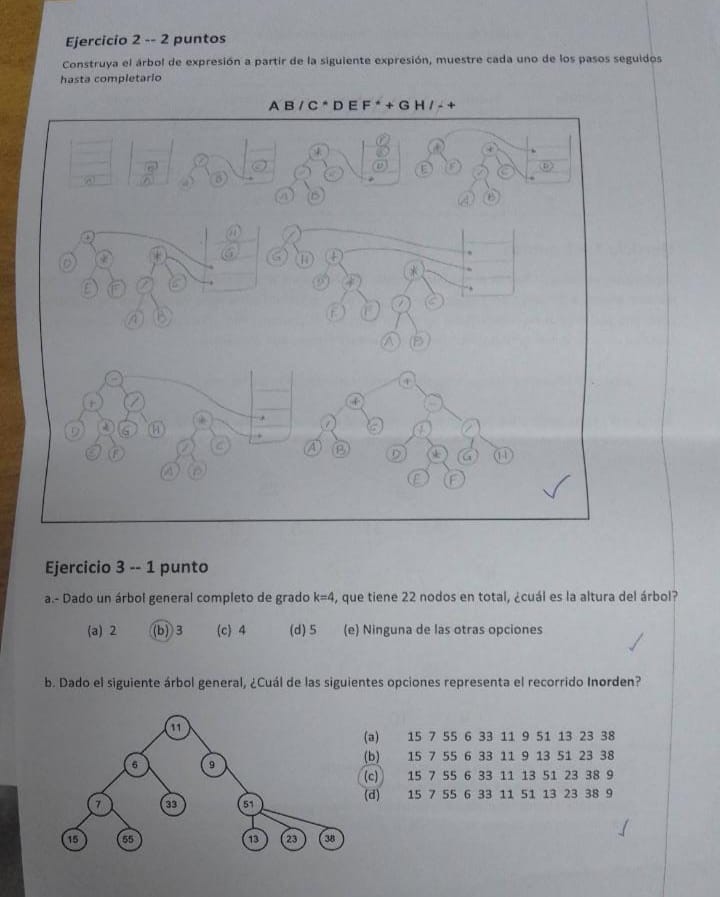 Ejercicio 2 -- 2 puntos
Construya el árbol de expresión a partir de la siguiente expresión, muestre cada uno de los pasos seguidos
hasta completarlo
A B / C * D E F * + G H / - +
A
B
A
/
A B
C
*
/ C
A B
F
E
D
*
E F
*
/ C
A B
D
+
D *
E F
*
/ C
A B
H
G
/
G H
+
D *
E F
*
/ C
A B
-
+ /
D * G H
E F
*
/ C
A B
+
* -
/ C + /
A B D * G H
E F
Ejercicio 3 -- 1 punto
a.- Dado un árbol general completo de grado k=4, que tiene 22 nodos en total, ¿cuál es la altura del árbol?
(a) 2 (b) 3 (c) 4 (d) 5 (e) Ninguna de las otras opciones
b. Dado el siguiente árbol general, ¿Cuál de las siguientes opciones representa el recorrido Inorden?
11
6 9
7 33 51
15 55 13 23 38
(a) 15 7 55 6 33 11 9 51 13 23 38
(b) 15 7 55 6 33 11 9 13 51 23 38
(c) 15 7 55 6 33 11 13 51 23 38 9
(d) 15 7 55 6 33 11 51 13 23 38 9